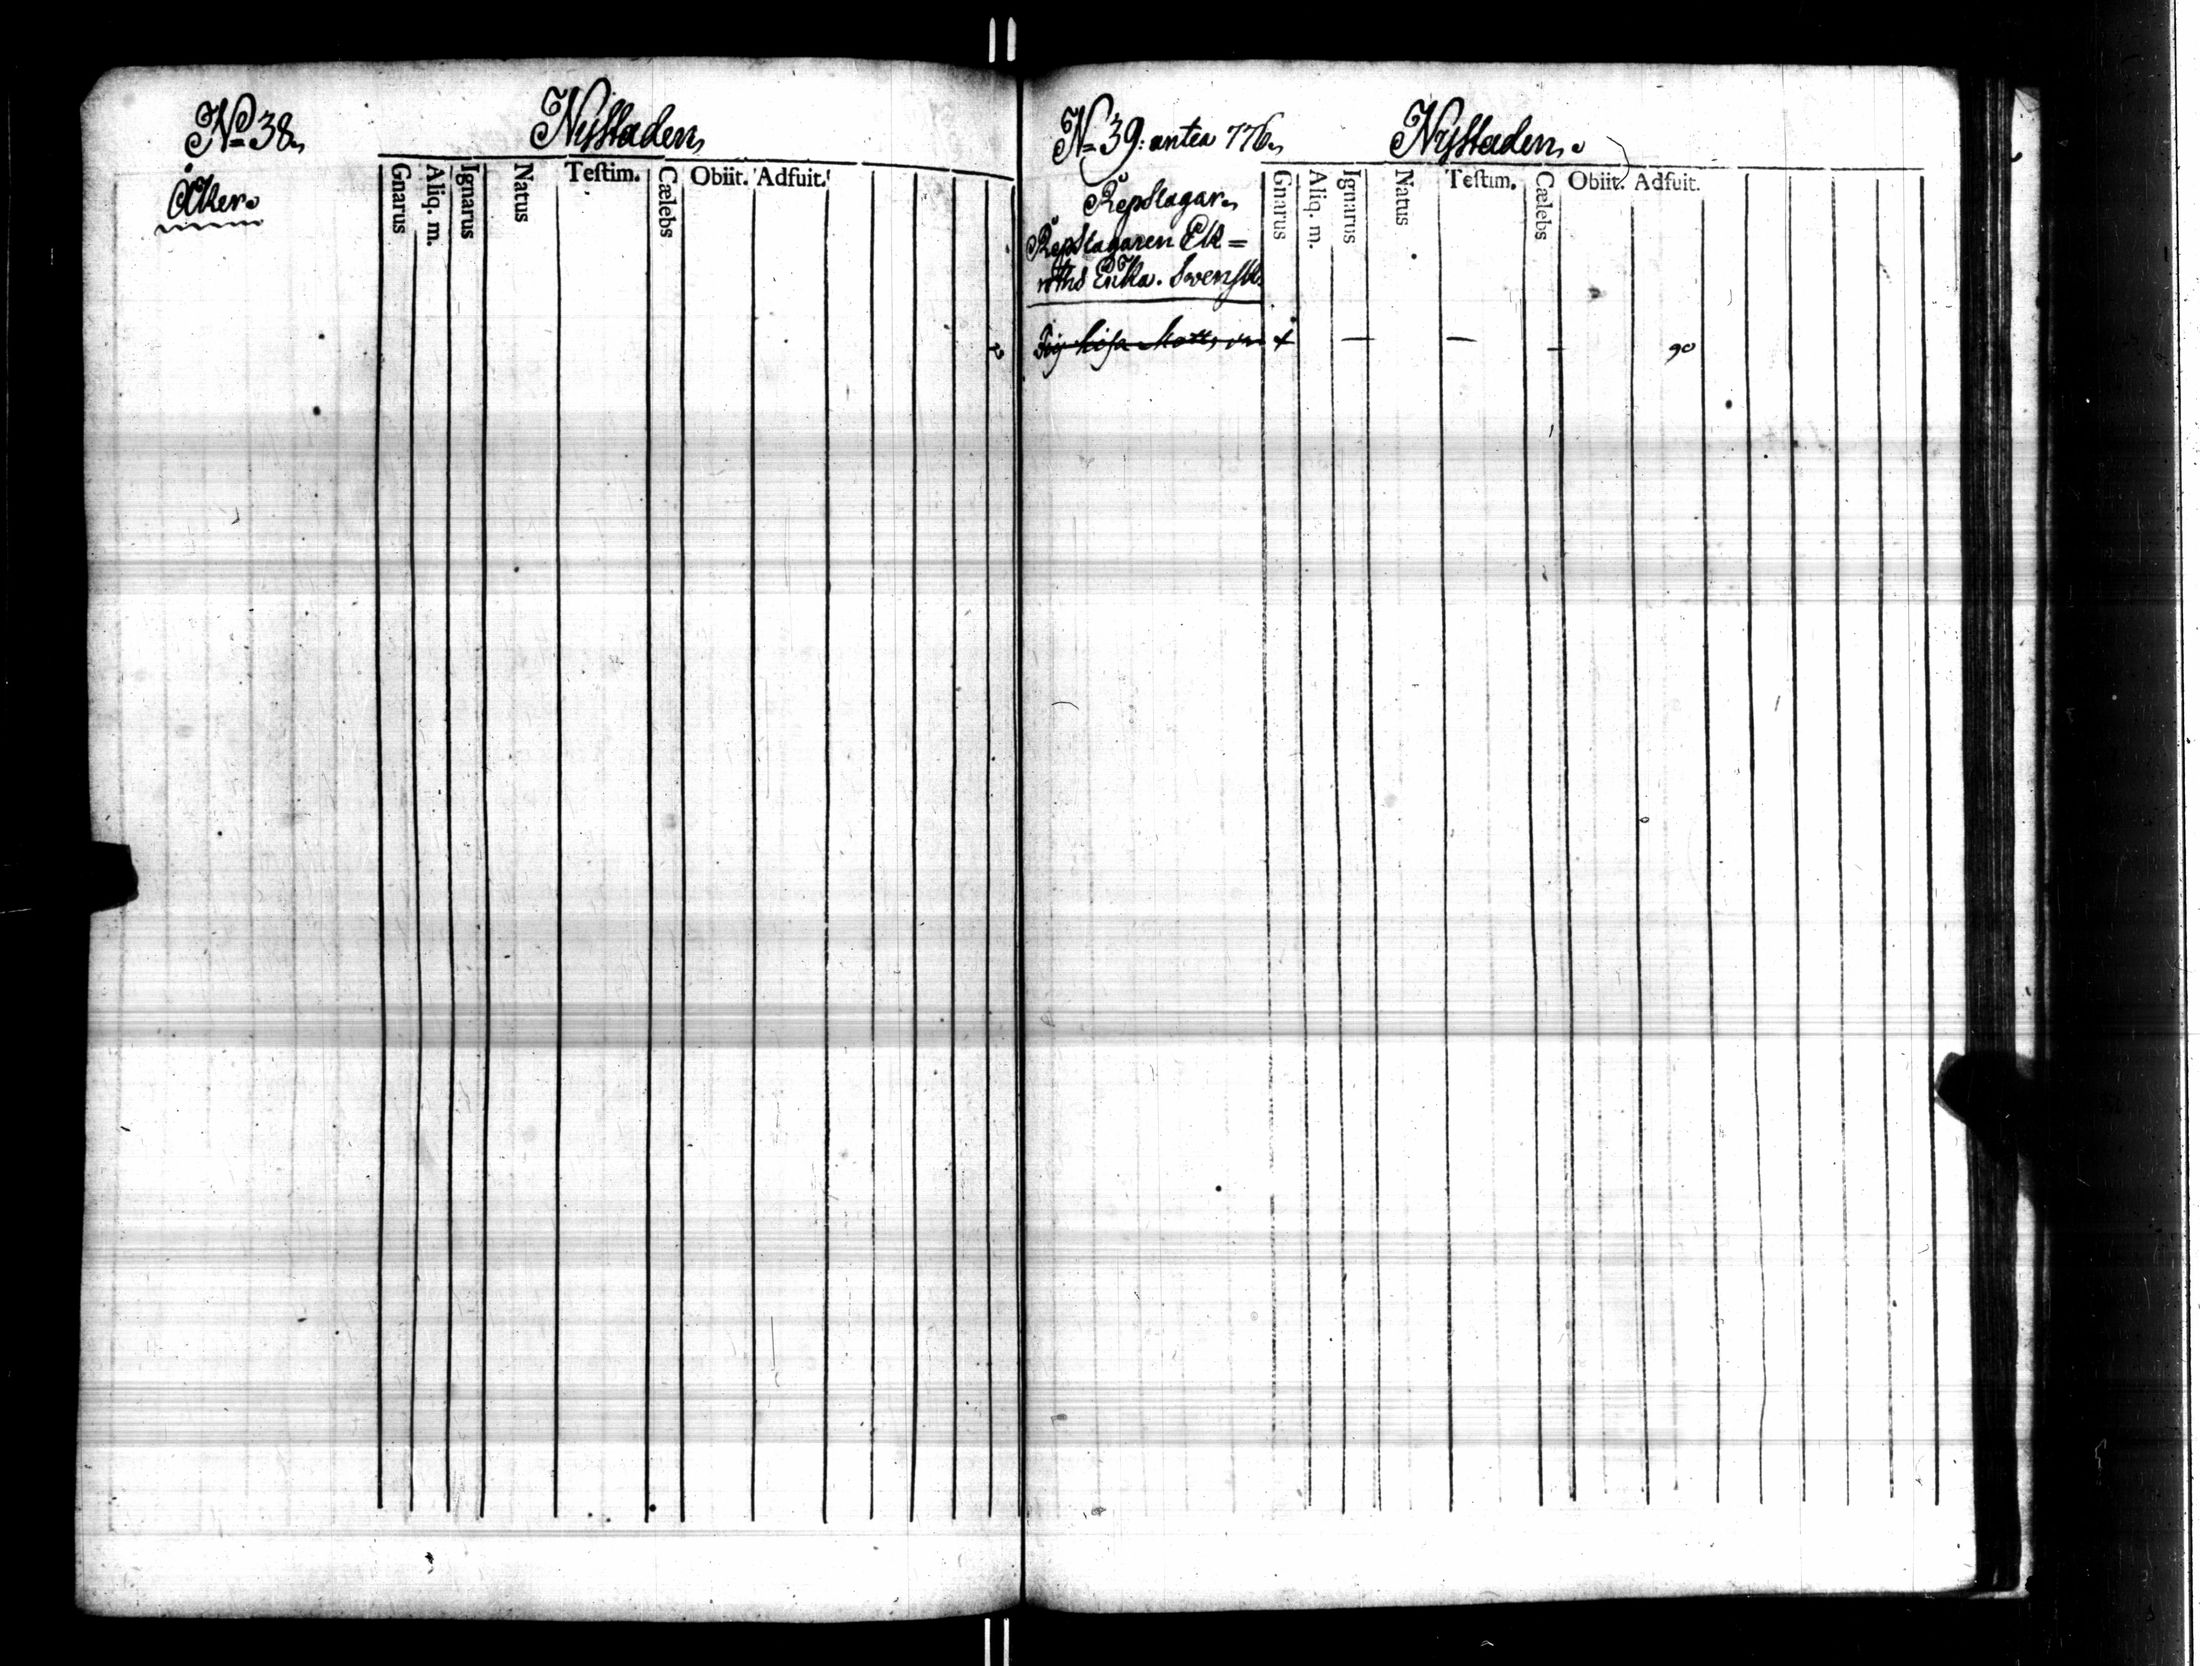 No 38.
Nystaden
Gnarus Aliq. m. Ignarus Natus Testim. Cælebs Obiit. Adfuit.
Åker.
No 39: antea 776.
Nystaden.
Gnarus Aliq. m. Ignarus Natus Testim. Cælebs Obiit. Adfuit.
Repslagar
Repslagaren Ek=
Enka. Svensk
Pig + — — — 90